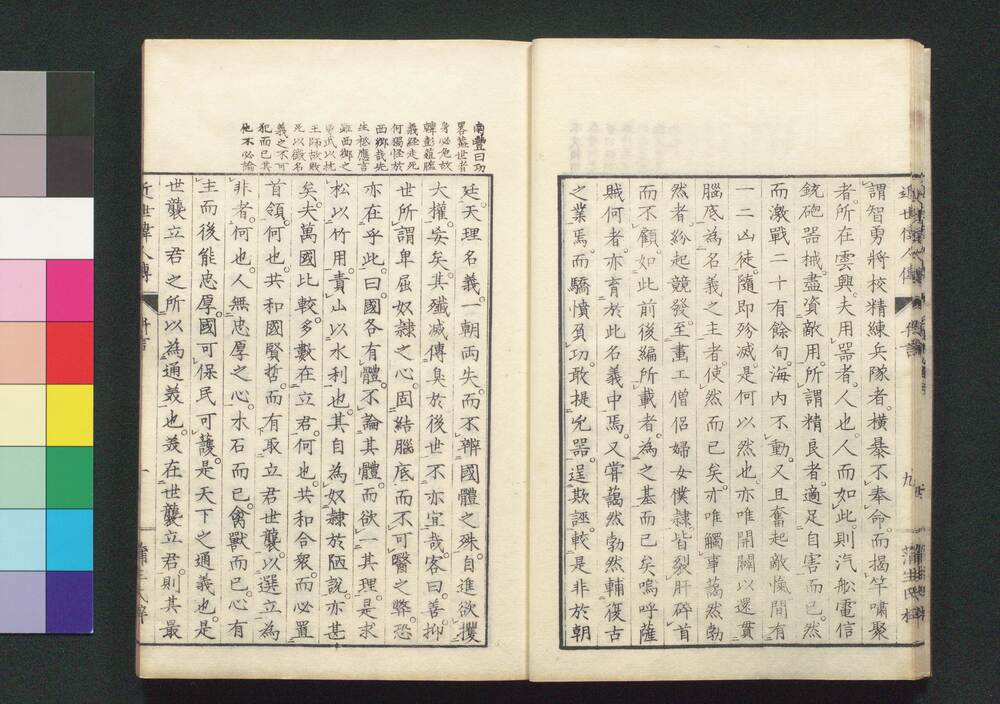 謂智勇將校精練兵隊者。橫暴不奉命。而揭竿嘯聚
者。所在雲興。夫用器者。人也。人而如此。則汽船電信
銃砲器械。盡資敵用。所謂精良者。適足自害而已。然
而激戰二十有餘旬。海内不動。又且奮起敵愾。間有
一二凶徒。隨即殄滅。是何以然也。亦唯開闢以還。貫
腦底。為名義之主者。使然而已矣。亦唯觸事藹然勃
然者。紛起競發。至畫工僧侶婦女僕隷。皆裂肝碎首
而不顧。如此前後編所載者。為之基而已矣。嗚呼薩
賊何者。亦育於此名義中焉。又嘗藹然勃然。輔復古
之業焉。而驕憤負功。敢提兇器。逞欺誣。較是非於朝
南豐曰功
畧蓋世者
身必危故
韓彭葅醢
義經走死
何獨怪於
西鄉哉先
生嘗應言
雖西鄉之
勇武以抗
王師故敗
死以徵名
義之不可
犯而已其
他不必論
廷。天理名義。一朝両失。而不辨國體之殊。自進欲攫
大權。妄矣。其殲滅傳臭於後世。不亦宜哉。客曰。善。抑
世所謂卑屈奴隷之心。固結腦底。而不可醫之弊。恐
亦在乎此。曰。國各有體。不論其體。而欲一其理。是求
松以竹用。責山以水利也。其自為奴隷於陋說。亦甚
矣。夫萬國比較。多數在立君。何也。共和合衆。而必置
首領。何也。共和國賢哲。而有取立君世襲。以選立為
非者。何也。人無忠厚之心。木石而已。禽獸而已。心有
主而後能忠厚。國可保民可護。是天下之通義也。是
世襲立君之所以為通義也。義在世襲立君。則其最
近世偉人傳